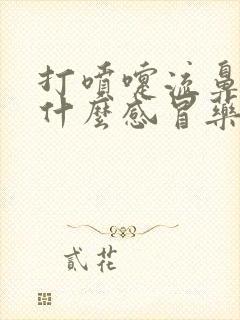 打噴嚏流鼻
什麼感冒藥
貳花